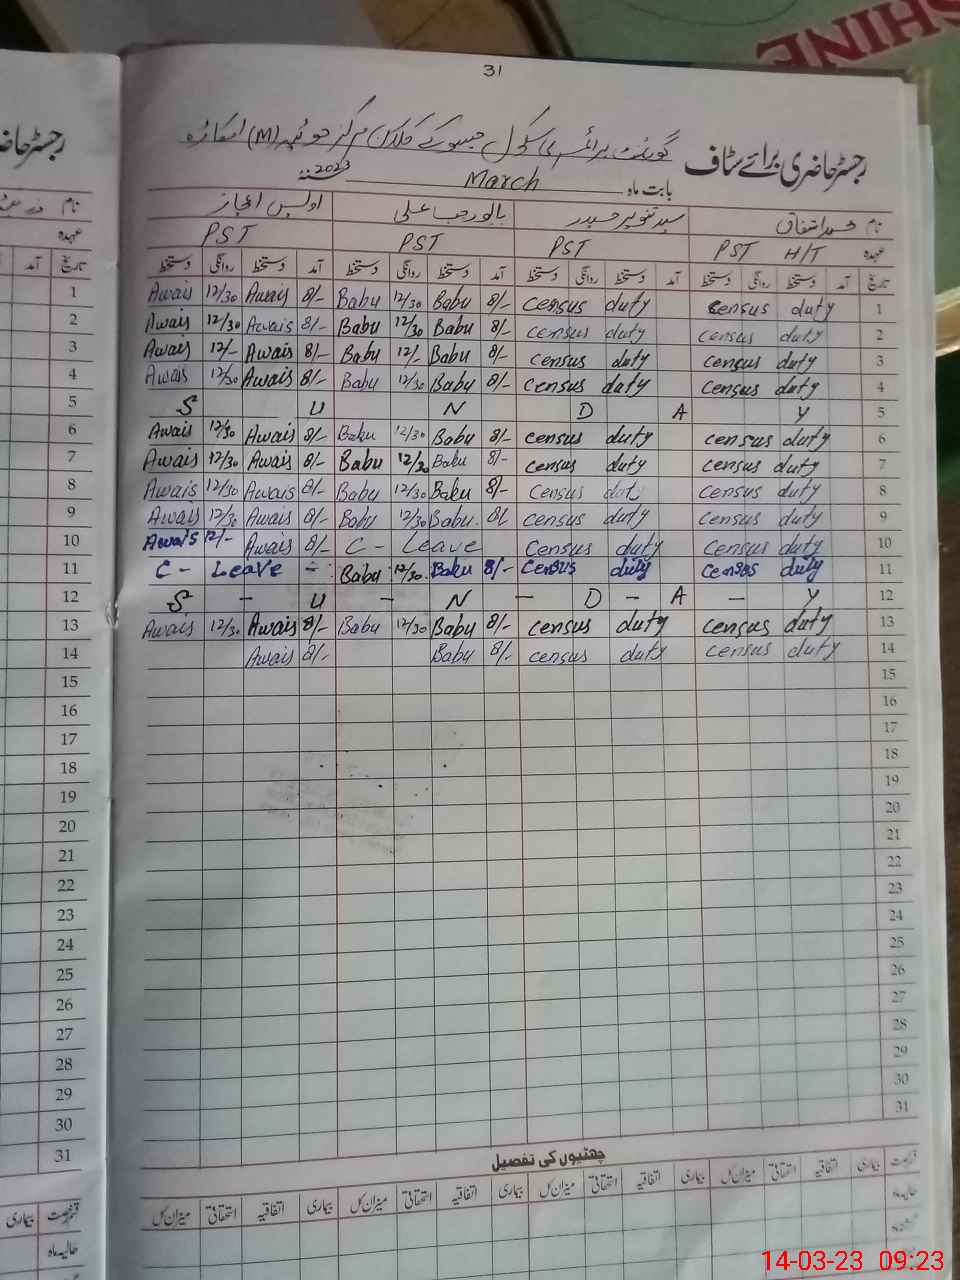 SHINE
31
رجسٹر حاضری برائے سٹاف
گورنمنٹ پرائمری سکول جسو کے کلاں مرکز (M) اوکاڑہ
بابت ماہ March 2023ء
نام محمد اشفاق سید تنویر حیدر بابو رجب علی اویس اعجاز
عہدہ PST H/T PST PST PST
تاریخ آمد دستخط روانگی دستخط آمد دستخط روانگی دستخط آمد دستخط روانگی دستخط آمد دستخط روانگی دستخط
1 Awais 12/30 Awais 8/- Babu 12/30 Babu 8/- Census duty Census duty 1
2 Awais 12/30 Awais 8/- Babu 12/30 Babu 8/- Census duty Census duty 2
3 Awais 12/- Awais 8/- Babu 12/- Babu 8/- Census duty Census duty 3
4 Awais 12/30 Awais 8/- Babu 12/30 Babu 8/- Census duty Census duty 4
5 S U N D A Y 5
6 Awais 12/30 Awais 8/- Babu 12/30 Babu 8/- Census duty Census duty 6
7 Awais 12/30 Awais 8/- Babu 12/30 Babu 8/- Census duty Census duty 7
8 Awais 12/30 Awais 8/- Babu 12/30 Babu 8/- Census duty Census duty 8
9 Awais 12/30 Awais 8/- Babu 12/30 Babu 8/- Census duty Census duty 9
10 Awais 12/- Awais 8/- C - Leave Census duty Census duty 10
11 C - Leave - Babu 12/30 Babu 8/- Census duty Census duty 11
12 S - U - N - D - A - Y 12
13 Awais 12/30 Awais 8/- Babu 12/30 Babu 8/- Census duty Census duty 13
14 Awais 8/- Babu 8/- Census duty Census duty 14
15 15
16 16
17 17
18 18
19 19
20 20
21 21
22 22
23 23
24 24
25 25
26 26
27 27
28 28
29 29
30 30
31 31
چھٹیوں کی تفصیل
قسم رخصت بیماری اتفاقیہ استحقاقی میزان کل بیماری اتفاقیہ استحقاقی میزان کل بیماری اتفاقیہ استحقاقی میزان کل بیماری اتفاقیہ استحقاقی میزان کل
حالیہ ماہ
14-03-23 09:23